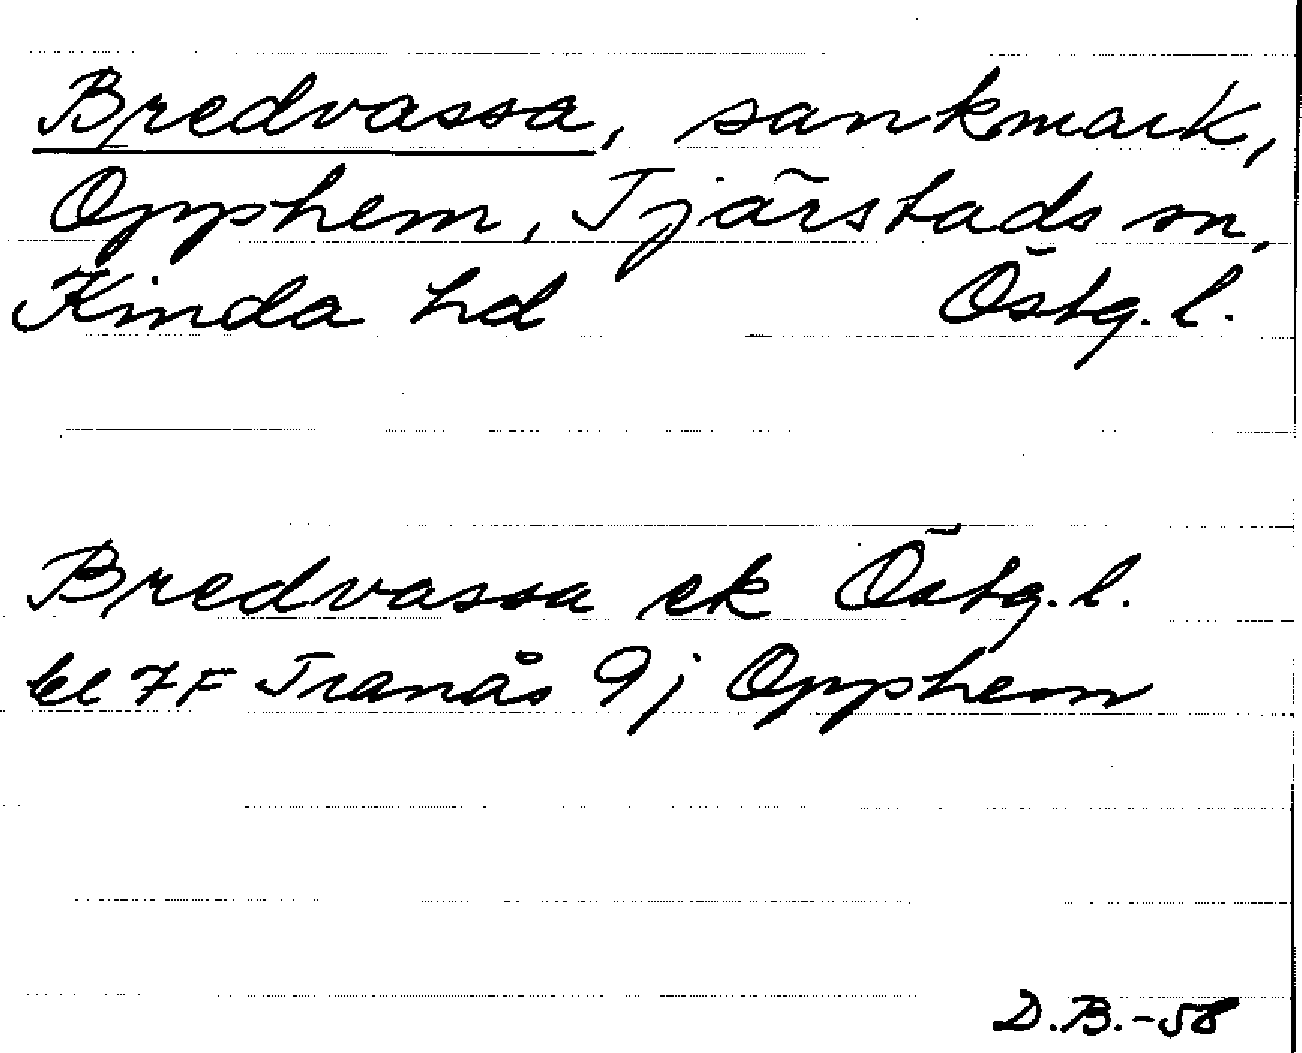 Bredvassa, sankmark,
Opphem, Tjärstads sn,
Kinda hd Östg. l.
Bredvassa ek Östg. l.
bl 7F Tranås 9j Opphem
D.B.-58